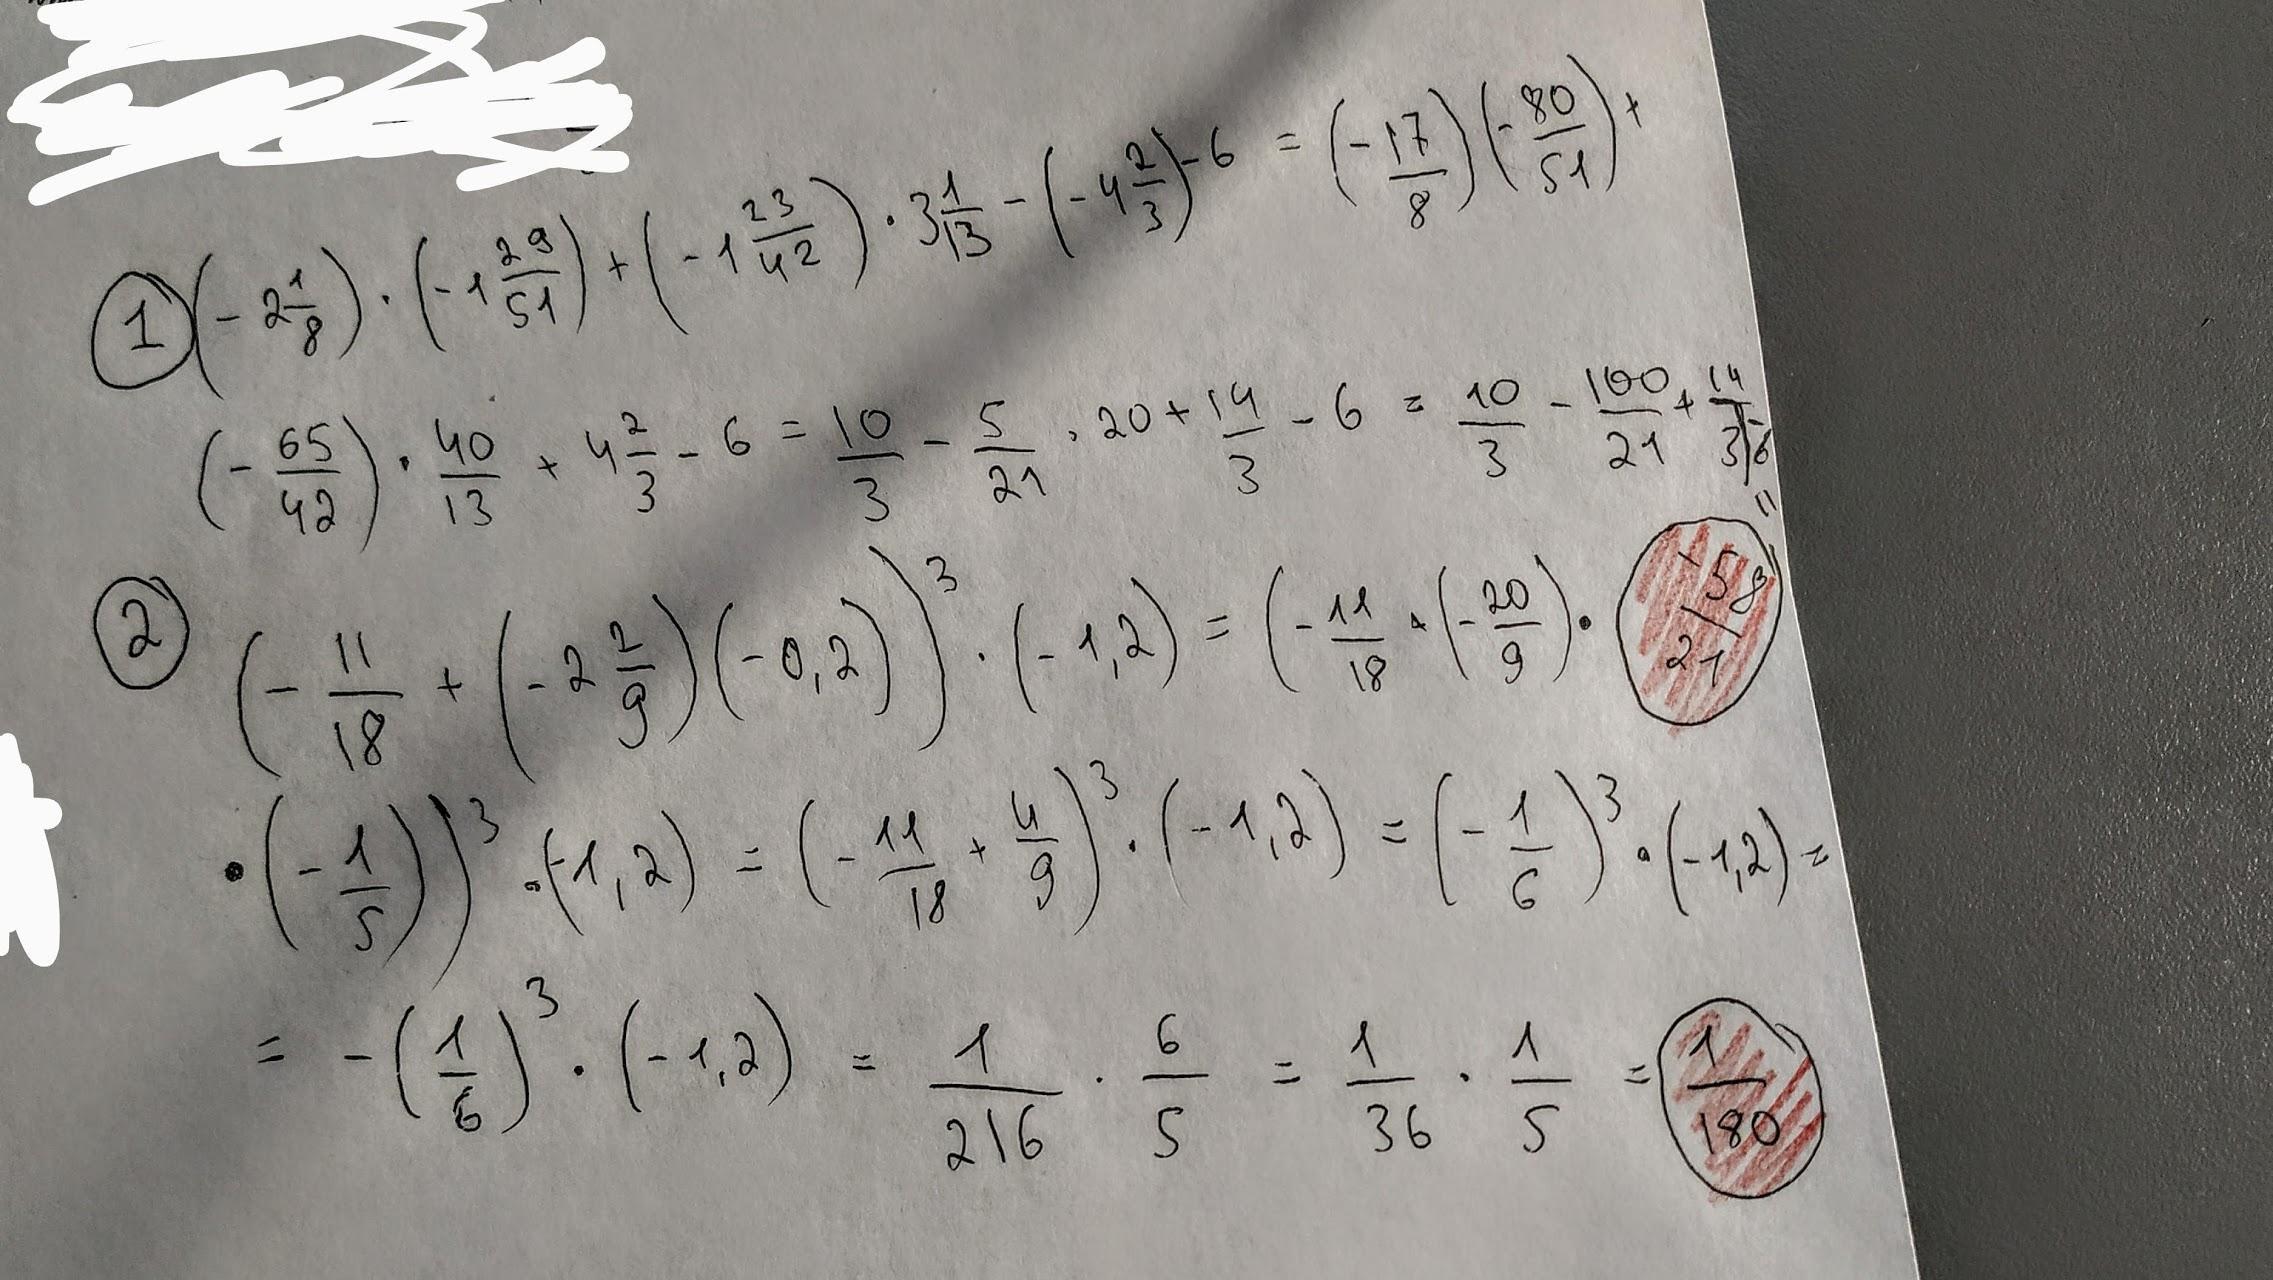 ① (-2 1/8) · (-1 29/51) + (-1 23/42) · 3 1/13 - (-4 2/3) - 6 = (-17/8)(-80/51) +
(-65/42) · 40/13 + 4 2/3 - 6 = 10/3 - 5/21 · 20 + 14/3 - 6 = 10/3 - 100/21 + 14/3 - 6
= -58/21
② (-11/18 + (-2 2/9)(-0,2))³ · (-1,2) = (-11/18 + (-20/9) ·
· (-1/5))³ · (-1,2) = (-11/18 + 4/9)³ · (-1,2) = (-1/6)³ · (-1,2) =
= -(1/6)³ · (-1,2) = 1/216 · 6/5 = 1/36 · 1/5 = 1/180